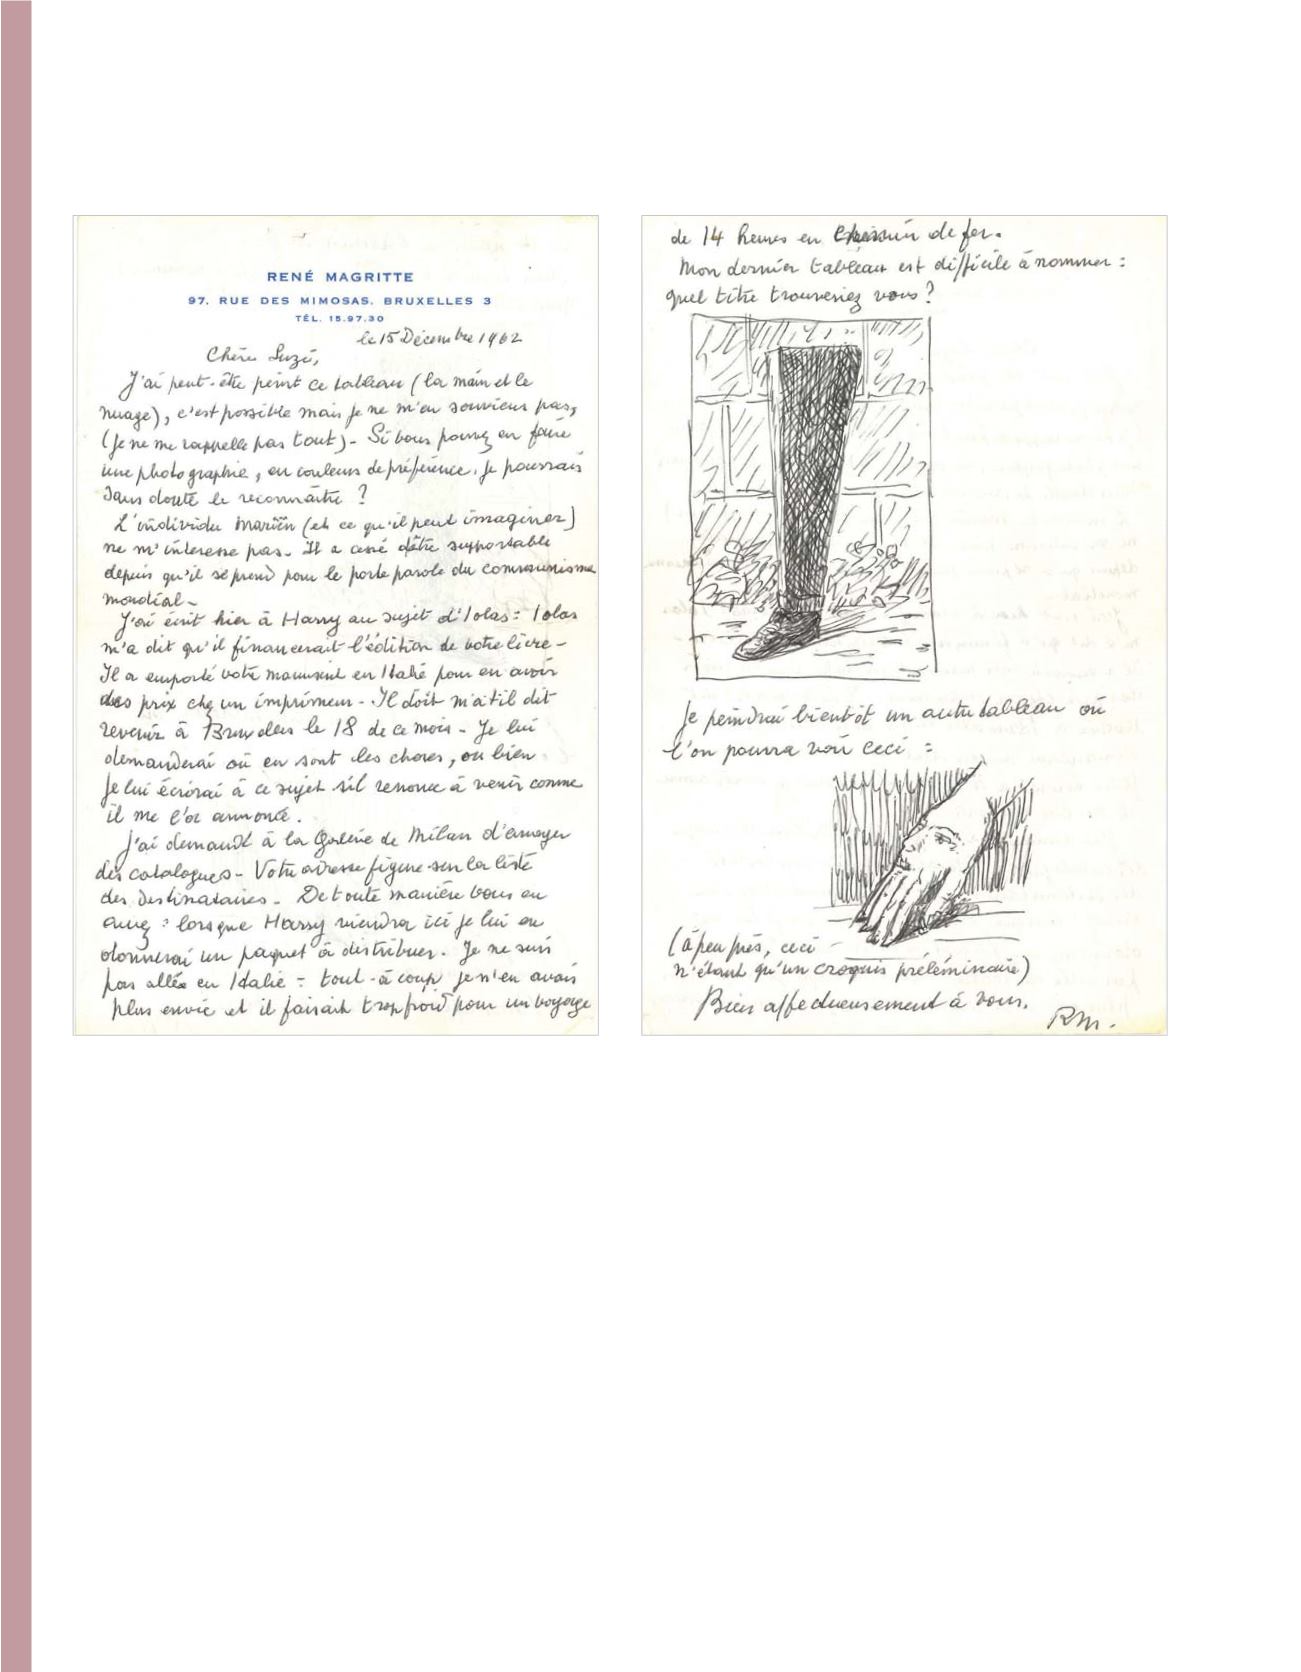 RENÉ MAGRITTE
97, RUE DES MIMOSAS. BRUXELLES 3
TÉL. 15.97.30
le 15 Décembre 1962
Chère Suzi,
J'ai peut-être peint ce tableau (la main et le
nuage), c'est possible mais je ne m'en souviens pas,
(je ne me rappelle pas tout)- Si vous pouvez en faire
une photographie, en couleurs de préférence, je pourrais
sans doute le reconnaître ?
L'individu Mariën (et ce qu'il peut imaginer)
ne m'intéresse pas- Il a cessé d'être supportable
depuis qu'il se prend pour le porte parole du communisme
mondial-
J'ai écrit hier à Harry au sujet d'Iolas: Iolas
m'a dit qu'il financerait l'édition de votre livre-
Il a emporté votre manuscrit en Italie pour en avoir
des prix chez un imprimeur- Il doit m'a t'il dit
revenir à Bruxelles le 18 de ce mois- Je lui
demanderai où en sont les choses, ou bien
je lui écrirai à ce sujet s'il renonce à venir comme
il me l'a annoncé.
J'ai demandé à la Galerie de Milan d'envoyer
des catalogues- Votre adresse figure sur la liste
des destinataires- De toute manière vous en
aurez : lorsque Harry viendra ici je lui en
donnerai un paquet à distribuer. Je ne suis
pas allé en Italie : tout-à coup je n'en avais
plus envie et il faisait trop froid pour un voyage
de 14 heures en chemin de fer.
Mon dernier tableau est difficile à nommer :
quel titre trouveriez vous ?
Je peindrai bientôt un autre tableau où
l'on pourra voir ceci :
(à peu près, ceci
n'étant qu'un croquis préléminaire)
Bien affectueusement à vous.
RM.